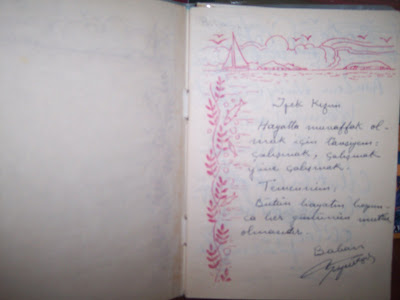 İpek Kızım
Hayatta muvaffak ol-
mak için tavsiyem:
çalışmak, çalışmak
yine çalışmak.
Temennim,
Bütün hayatın boyun-
ca her gününün mutlu
olmasıdır.
Baban